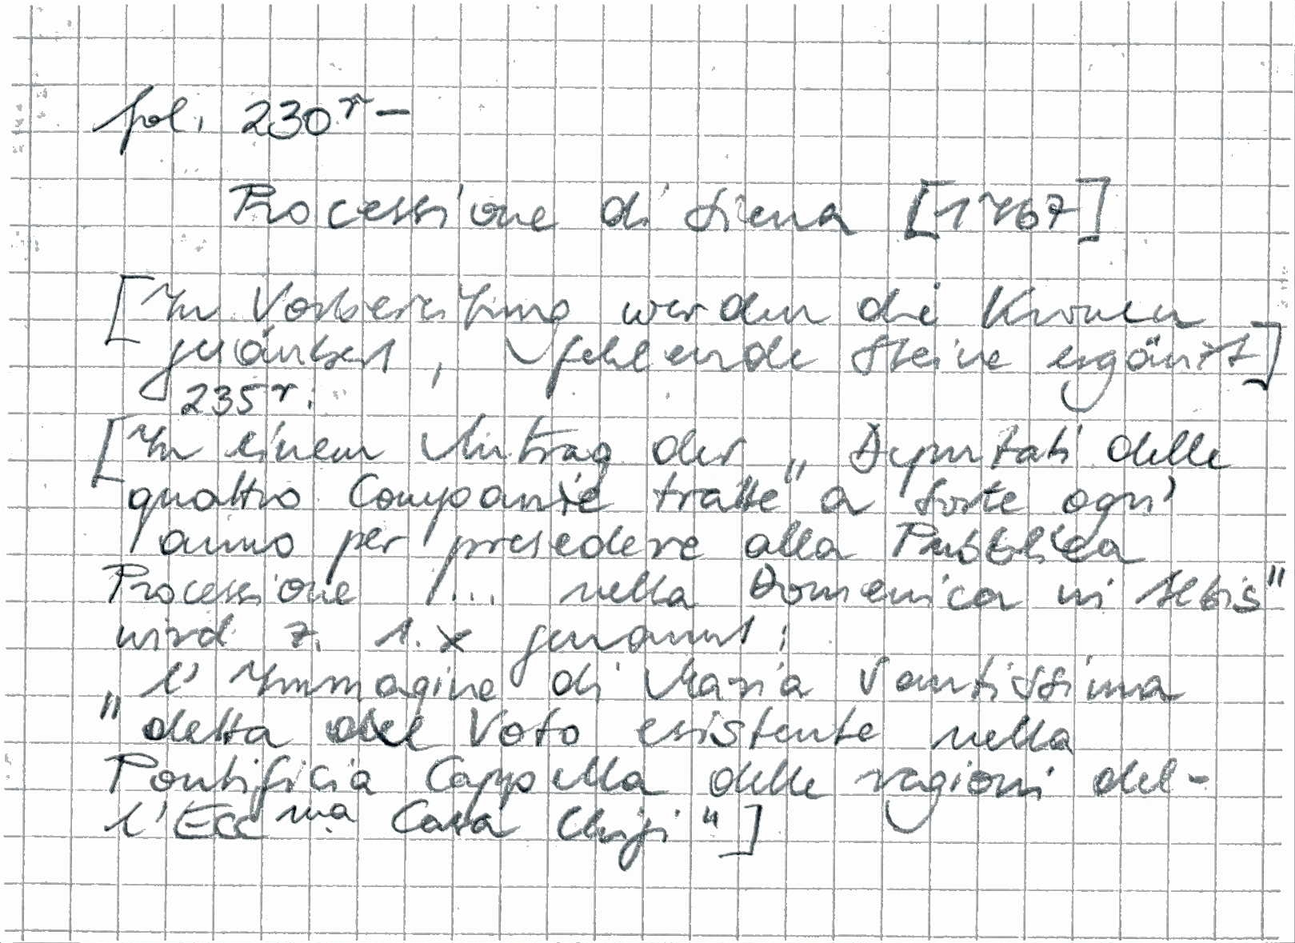 fol. 230r –
Processione di Siena [1767]
[In Vorbereitung werden die Kronen
gesäubert, fehlende Steine ergänzt]
235r:
[In einem Antrag der „Deputati delle
quattro Compagnie tratte" a sorte ogni
anno per presedere alla Pubblica
Processione /... nella Domenica in Albis"
wird z. 1.x genannt:
l'Immagine di Maria Santissima
"detta del Voto esistente nella
Pontificia Cappella delle ragioni del-
l'Eccma Casa Chigi"]